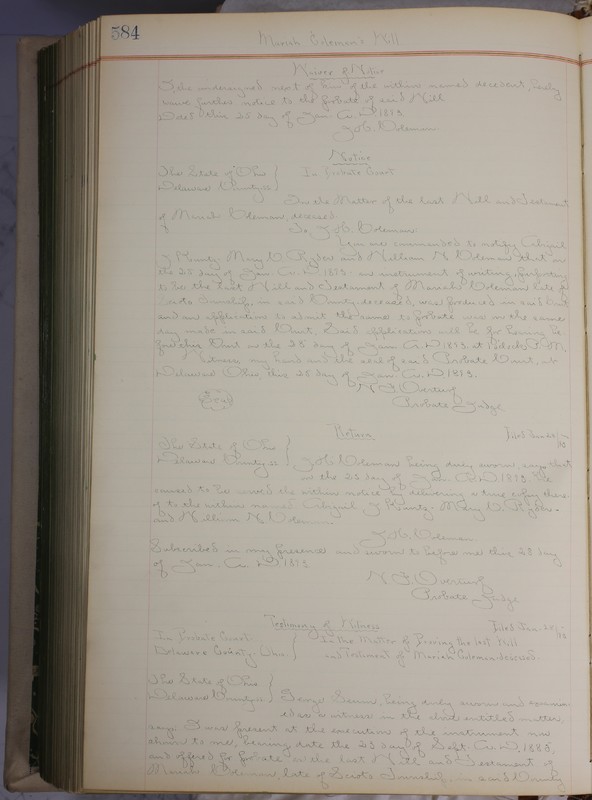 584
Mariah Coleman's Will
Waiver of Notice
I the undersigned next of kin of the within named decedent, hereby
waive further notice to the probate of said Will
Dated this 25 day of Jan. A. D. 1893.
J. H. Coleman
Notice
The State of Ohio
Delaware County, ss
In Probate Court
In the Matter of the last Will and Testament
of Mariah Coleman, deceased.
To J. H. Coleman
You are commanded to notify Abigail
J. Mary D. Ryder and William H. Coleman that on
the 25 day of Jan. A. D. 1893. an instrument of writing, purporting
to be the last Will and Testament of Mariah Coleman late of
Scioto Township, in said County, deceased, was produced in said Court
and an application to admit the same to probate was on the same
day made in said Court. Said application will be for hearing be
fore this Court on the 28 day of Jan. A. D. 1893 at o'clock P. M.
Witness my hand and the seal of said Probate Court, at
Delaware Ohio, this 25 day of Jan. A. D. 1893.
N. F. Overturf
Seal
Probate Judge
Return
Filed Jan
The State of Ohio
Delaware County, ss
J. H. Coleman being duly sworn, says that
on the 25 day of Jan. A. D. 1893 he
caused to be served the within notice by delivering a true copy there
of to the within named Abigail J. Mary D. Ryder
and William H. Coleman.
J. H. Coleman
Subscribed in my presence and sworn to before me this 28 day
of Jan. A. D. 1893
N. F. Overturf
Probate Judge
Testimony of Witness
Filed Jan. 28
In Probate Court.
Delaware County, Ohio.
In the Matter of Proving the last Will
and Testament of Mariah Coleman deceased.
The State of Ohio
Delaware County, ss
being duly sworn and examin
ed as a witness in the above entitled matter,
says: I was present at the execution of the instrument now
shown to me, bearing date the 23 day of Sept. A. D. 1889,
and offered for probate as the last Will and Testament of
Mariah Coleman, late of Scioto Township, in said County